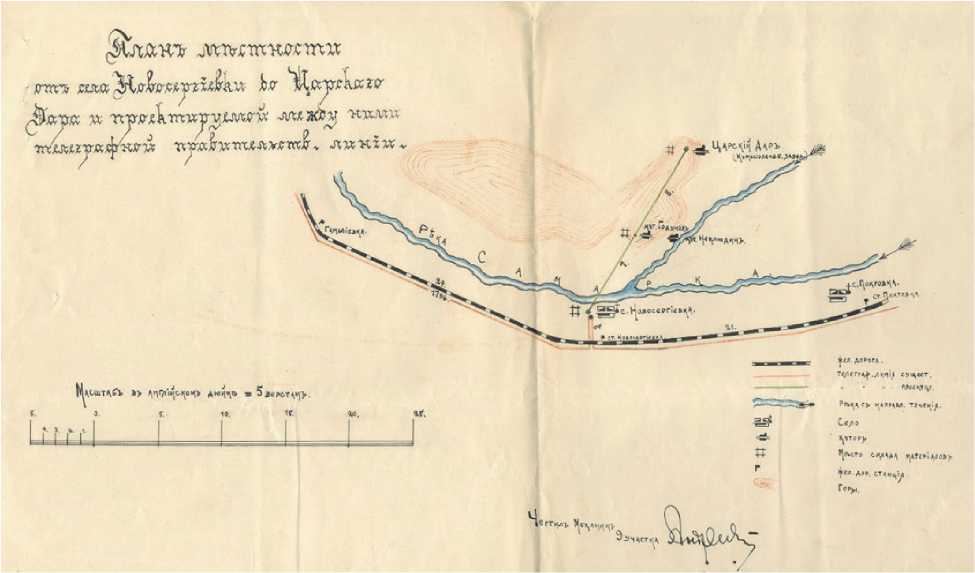 Планъ мѣстности
отъ села Новосергiевки до Царскаго
Дара и проектируемой между ними
телеграфной правительств. линiи.
Царскiй Даръ
Рѣка
Самарка
с. Новосергiевка.
ст. Новосергiевка
с. Покровка.
ст. Покровка
21.
Масштабъ въ англiйскомъ дюймѣ = 5 верстамъ.
5. 4. 3. 2. 1. 0. 5. 10. 15. 20. 25.
Жел. дорога.
Телеграф. линiя сущест.
" " " проэкт.
Рѣка съ направл. теченiя.
Село
Хуторъ
Мѣсто склада матерiаловъ
Р
Жел. дор. станцiя.
Горы.
Чертилъ Механикъ
участка